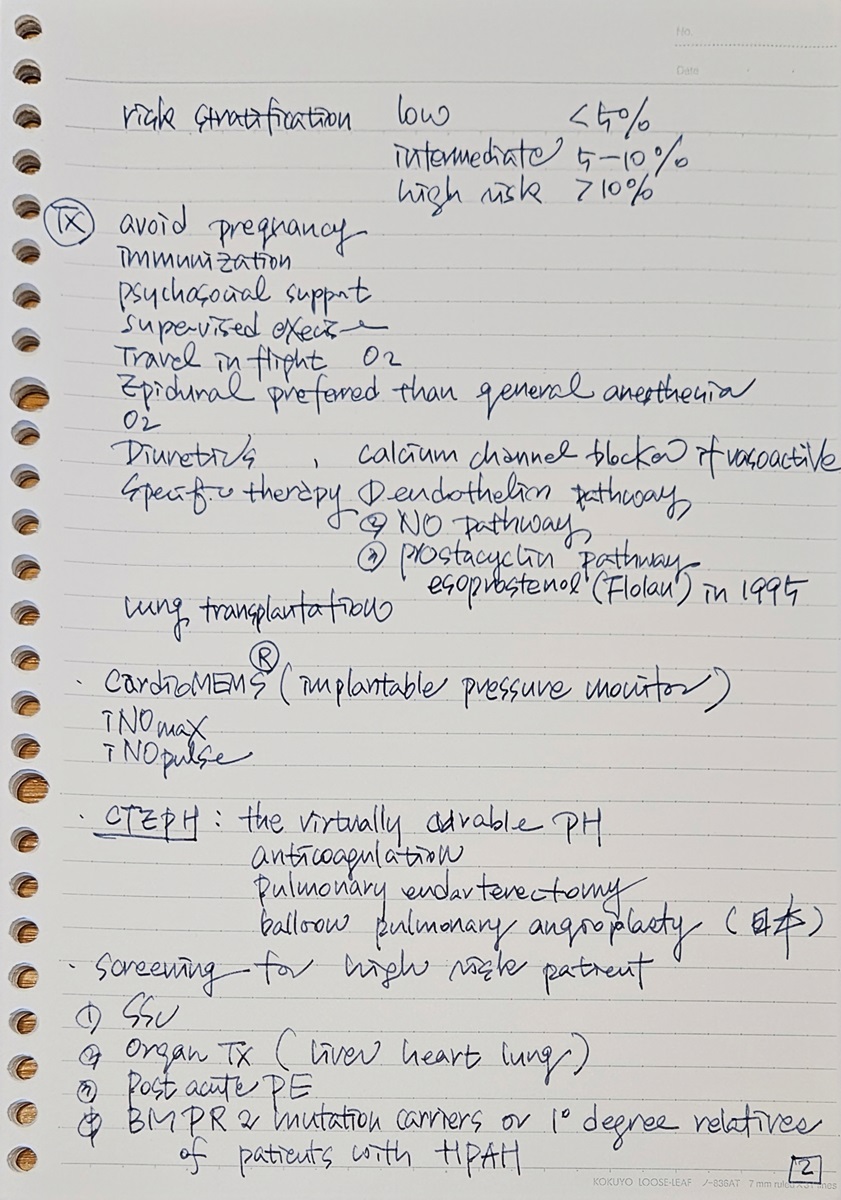 No.
Date
risk stratification low <5%
intermediate 5-10%
high risk >10%
TX avoid pregnancy
immunization
psychosocial support
supervised execise
Travel in flight O2
Epidural preferred than general anesthesia
O2
Diuretics, calcium channel blocker if vasoactive
Specific therapy ① endothelin pathway
② NO pathway
③ prostacyclin pathway
esoprostenol (Flolan) in 1995
lung transplantation
· CardioMEMS Ⓡ (implantable pressure monitor)
iNOmax
iNOpulse
· CTEPH : the virtually curable PH
anticoagulation
pulmonary endarterectomy
balloon pulmonary angioplasty (日本)
· screening for high risk patient
① SSc
② Organ TX (liver heart lung)
③ Post acute PE
④ BMPR2 mutation carriers or 1° degree relatives
of patients with HPAH
2
KOKUYO LOOSE-LEAF ノ-836AT 7 mm ruled